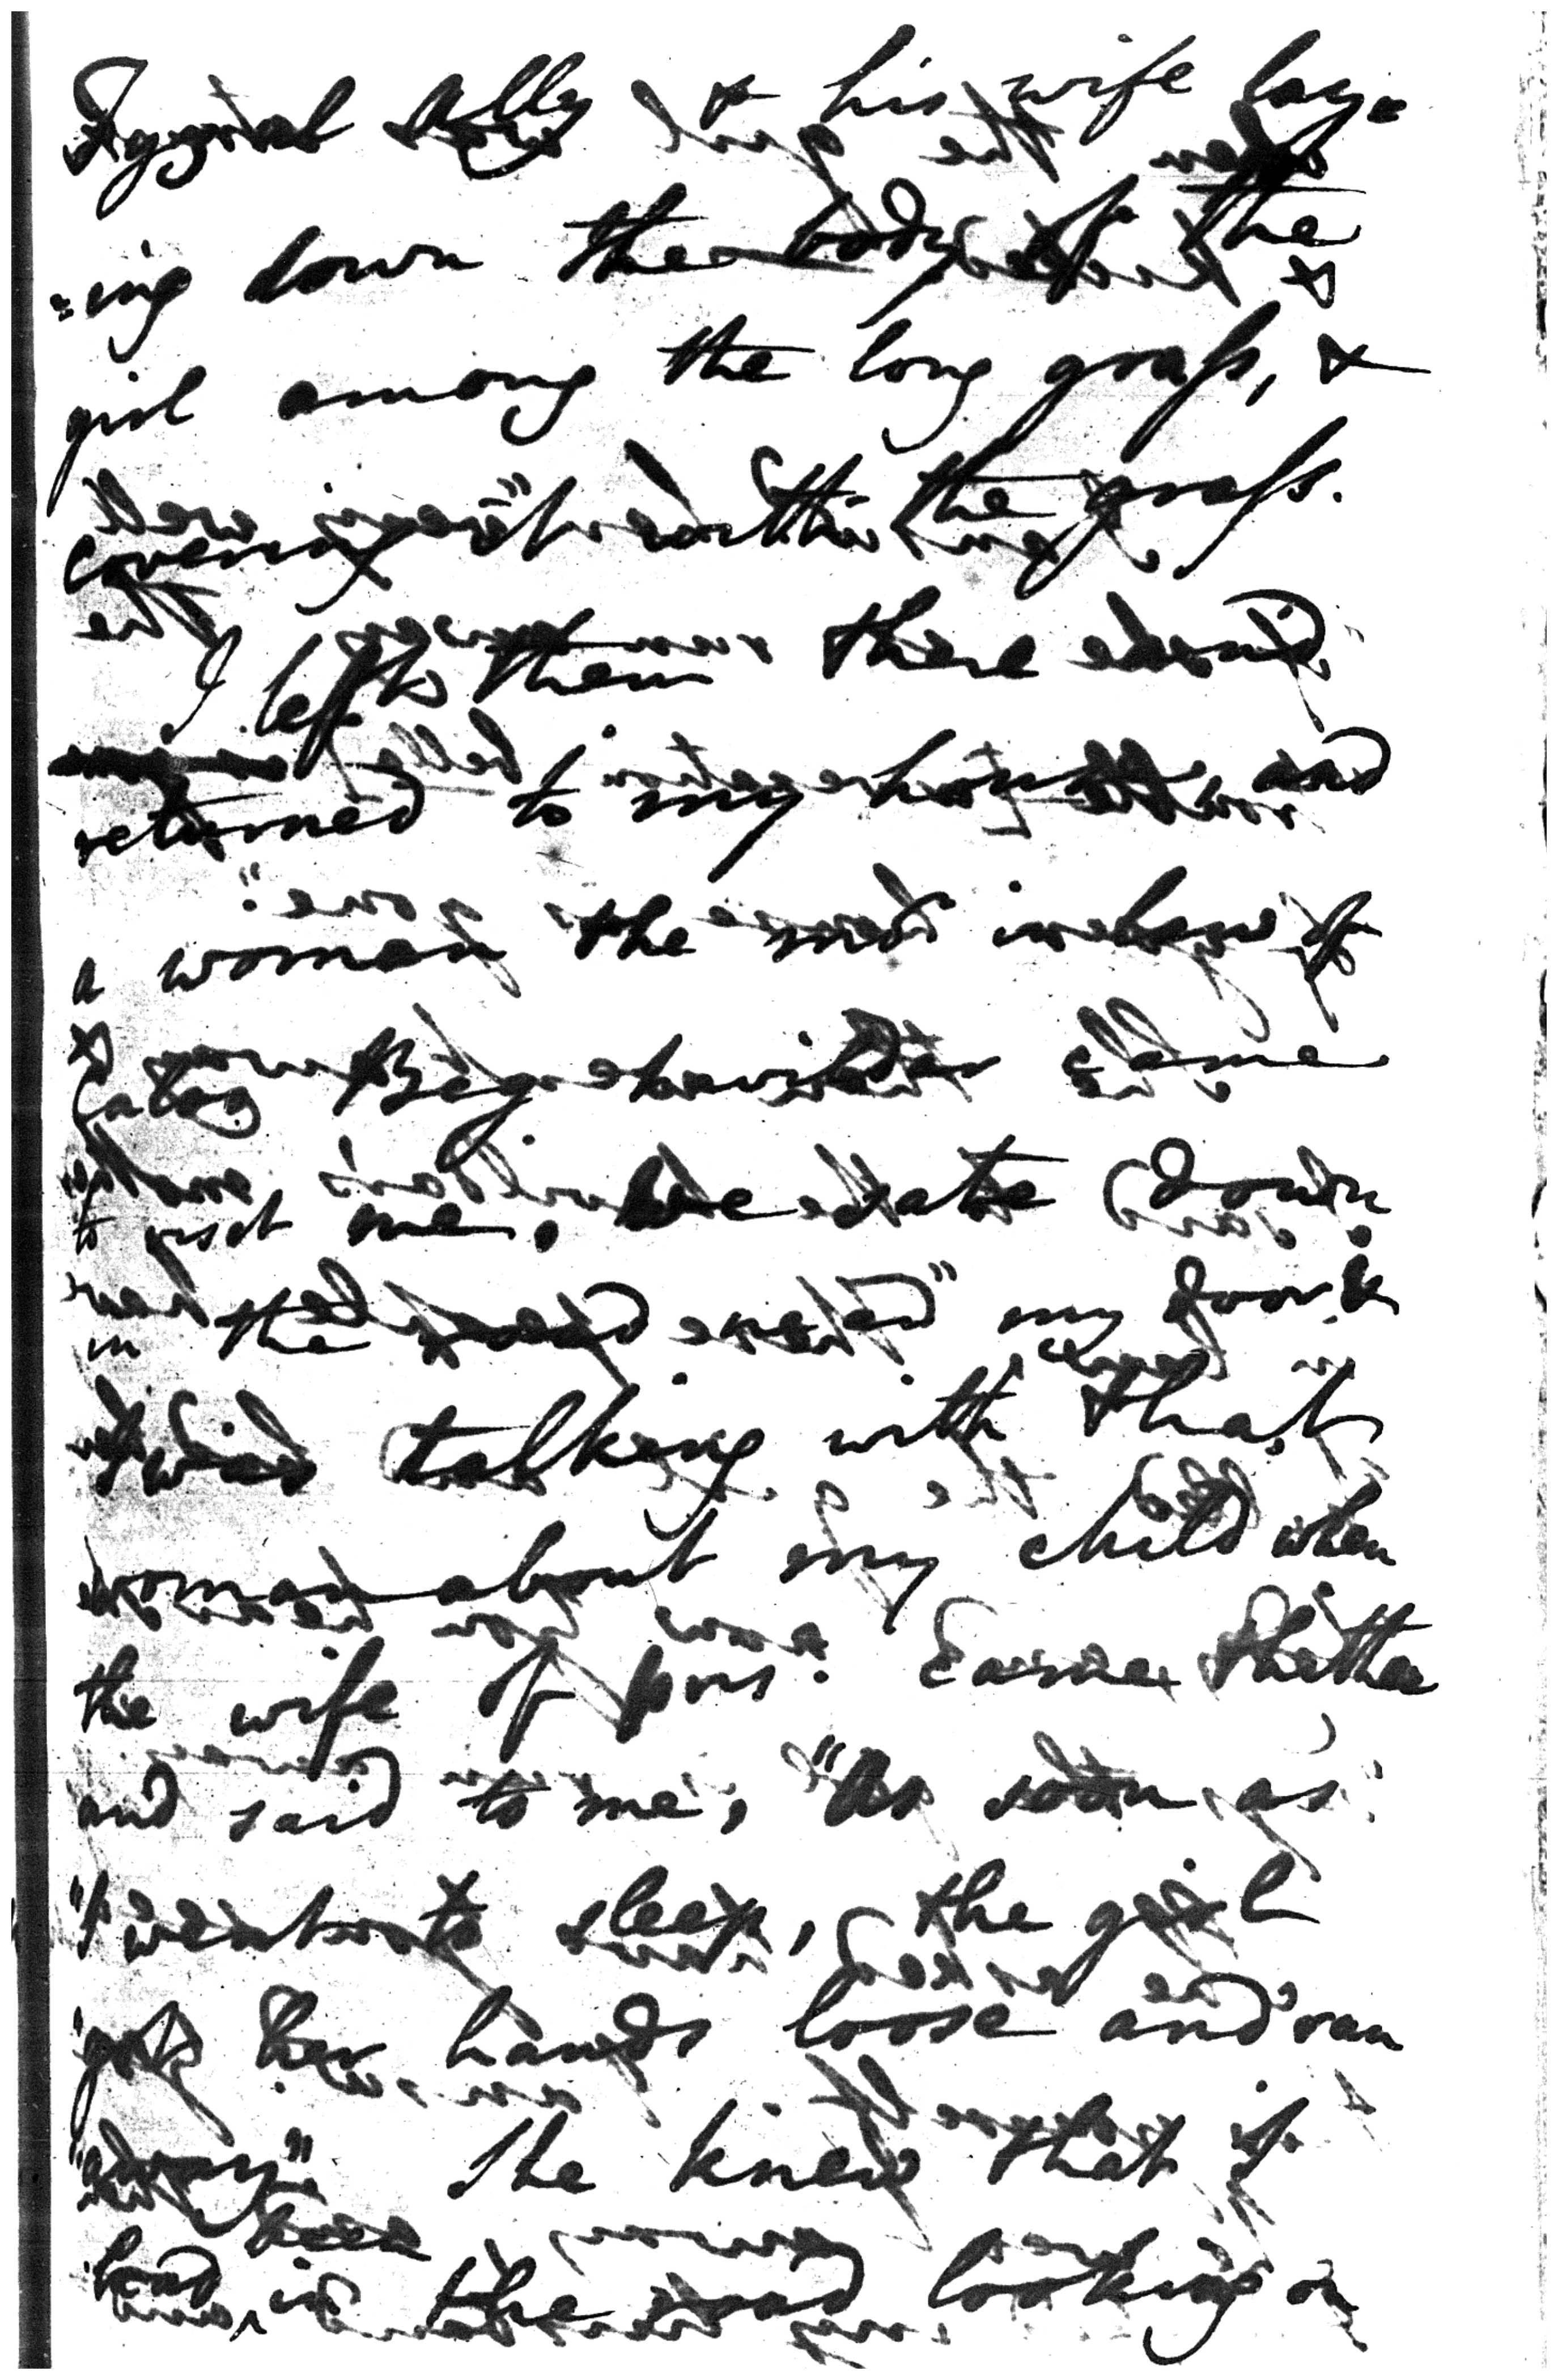 Ally & his wife lay=
=ing down the body of the
girl among the long grass, &
covering it with the grass.
I left them there and
returned to my house, and
a woman the mother in law of
Beg havildar came
to visit me, we sate down
in the road near my door &
I was talking with that
woman about my child when
the wife of came thither
and said to me, "As soon as
"I went to sleep, the girl
"got her hands loose and ran
"away". She knew that I
had been in the road looking on